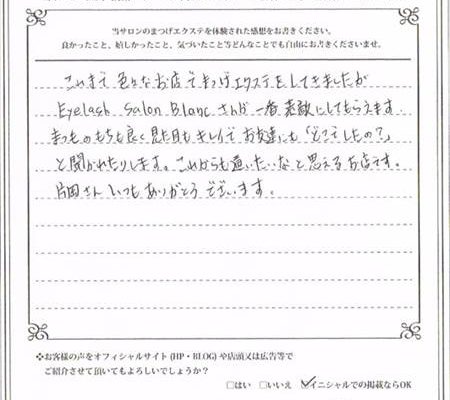 当サロンのまつげエクステを体験された感想をお書きください。
良かったこと、嬉しかったこと、気づいたこと等どんなことでも自由にお書きくださいませ。
これまで色々なお店でまつげエクステをしてきましたが
Eyelash Salon Blancさんが一番素敵にしてもらえます.
まつものもちも良く見た目もキレイでお友達にも「どこでしたの?」
と聞かれたりします。これからも通いたいなと思えるお店です。
片岡さんいつもありがとうございます。
❖お客様の声をオフィシャルサイト(HP・BLOG)や店頭又は広告等で
ご紹介させて頂いてもよろしいでしょうか?
□はい □いいえ ☑イニシャルでの掲載ならOK